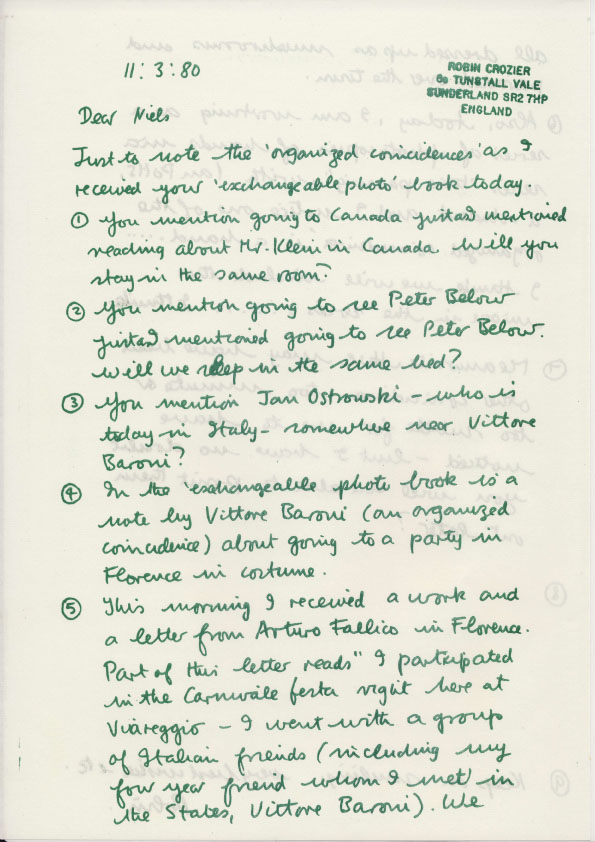 11:3:80
ROBIN CROZIER
TUNSTALL VALE
SUNDERLAND SR2 7HP
ENGLAND
Dear Niels
Just to note the 'organized coincidences' as I
received your 'exchangeable photo' book today.
① You mention going to Canada mentioned
reading about Mr. Klein in Canada. Will you
stay in the same room?
② You mention going to see Peter Below
mentioned going to see Peter Below.
Will we sleep in the same bed?
③ You mention Jan Ostrowski – who is
today in Italy – somewhere near Vittore
Baroni?
④ In the 'exchangeable photo book is a
note by Vittore Baroni (an organized
coincidence) about going to a party in
Florence in costume.
⑤ This morning I received a work and
a letter from Arturo Fallico in Florence.
Part of this letter reads " I participated
in the Carnivale festa right here at
Viareggio – I went with a group
of Italian friends (including my
four year friend whom I met in
the States, Vittore Baroni). We